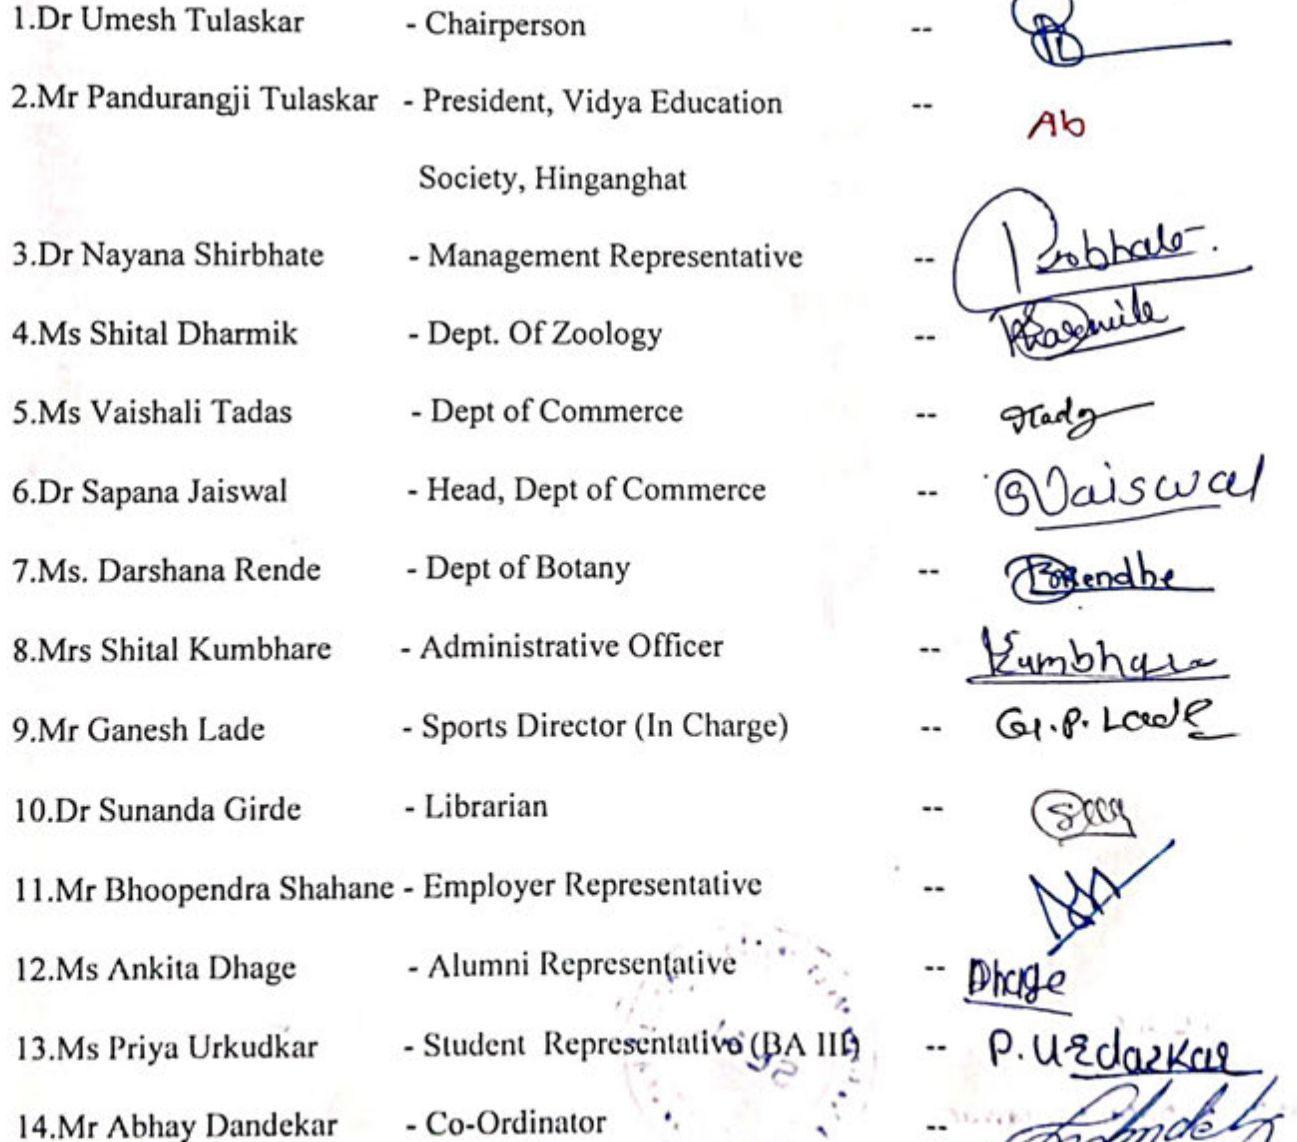 1.Dr Umesh Tulaskar - Chairperson --
2.Mr Pandurangji Tulaskar - President, Vidya Education -- Ab
Society, Hinganghat
3.Dr Nayana Shirbhate - Management Representative --
4.Ms Shital Dharmik - Dept. Of Zoology --
5.Ms Vaishali Tadas - Dept of Commerce --
6.Dr Sapana Jaiswal - Head, Dept of Commerce -- SJaiswal
7.Ms. Darshana Rende - Dept of Botany --
8.Mrs Shital Kumbhare - Administrative Officer -- Kumbhare
9.Mr Ganesh Lade - Sports Director (In Charge) -- G.P. Lade
10.Dr Sunanda Girde - Librarian --
11.Mr Bhoopendra Shahane - Employer Representative --
12.Ms Ankita Dhage - Alumni Representative -- Dhage
13.Ms Priya Urkudkar - Student Representative (BA III) -- P.
14.Mr Abhay Dandekar - Co-Ordinator --